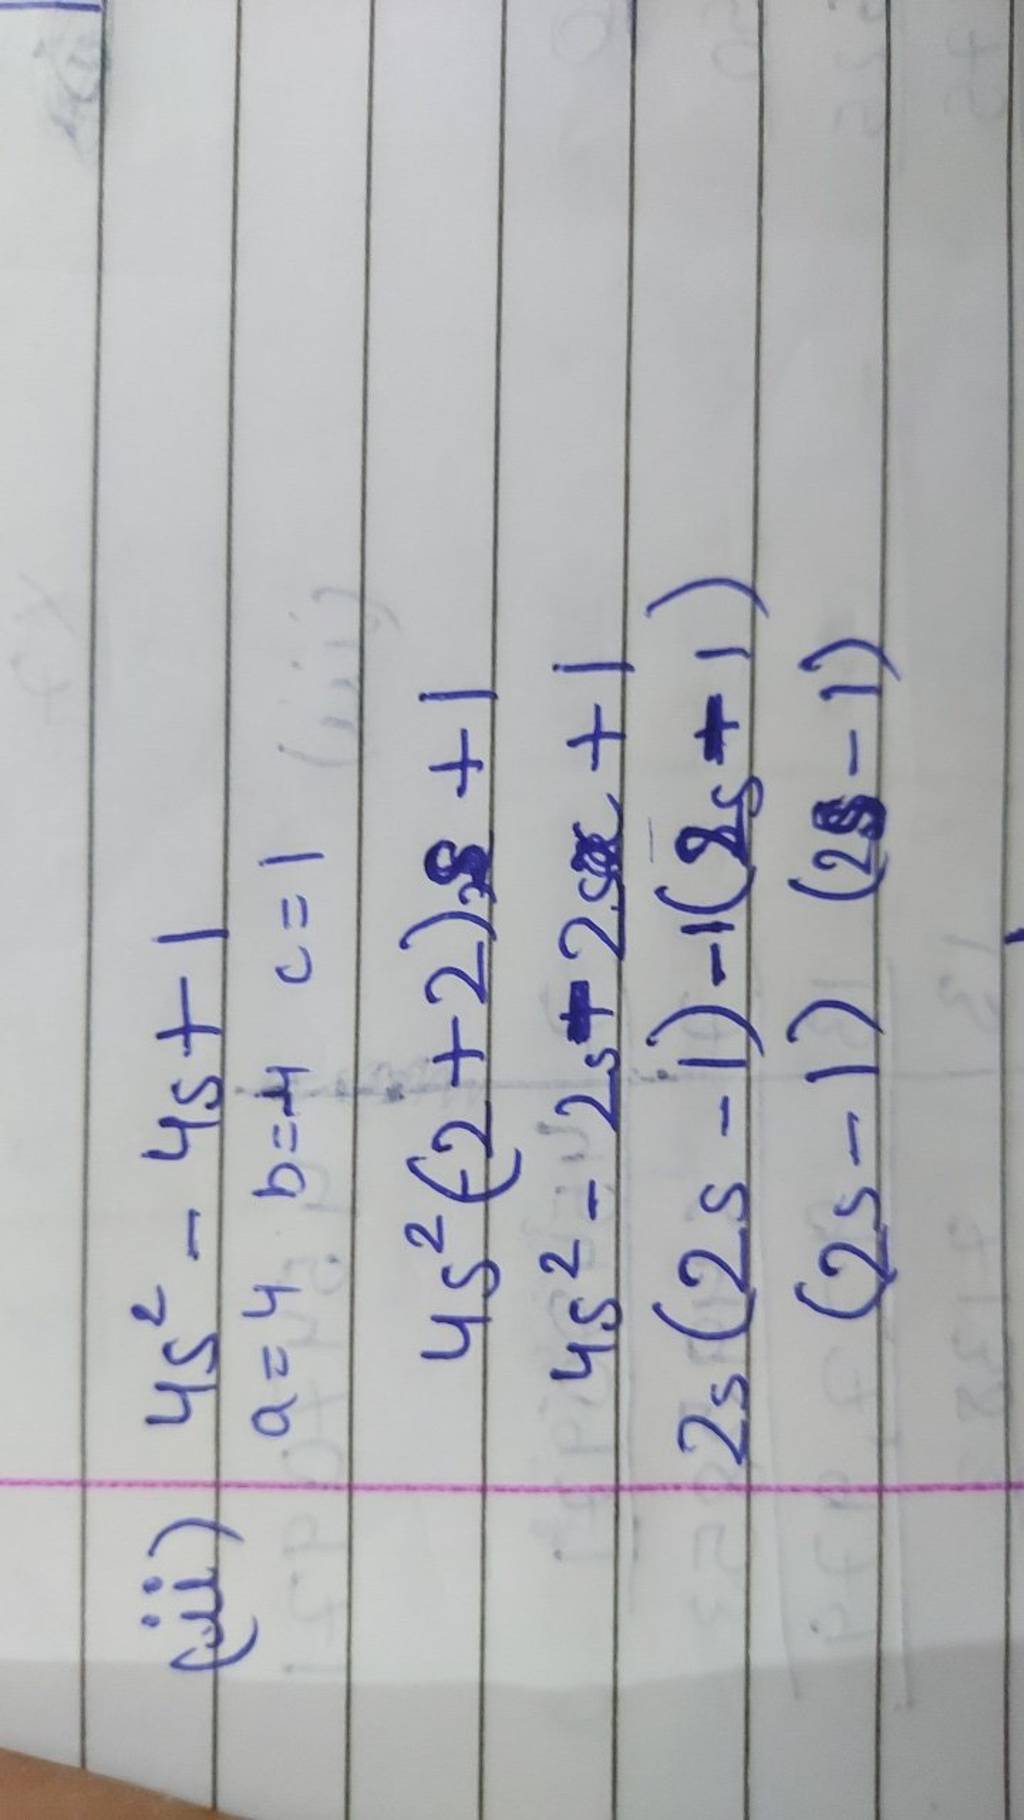 (ii) 4s² - 4s + 1
a = 4 b = -4 c = 1
4s² (-2 + 2)s + 1
4s² - 2s + 2s + 1
2s (2s - 1) - 1 (2s + 1)
(2s - 1) (2s - 1)